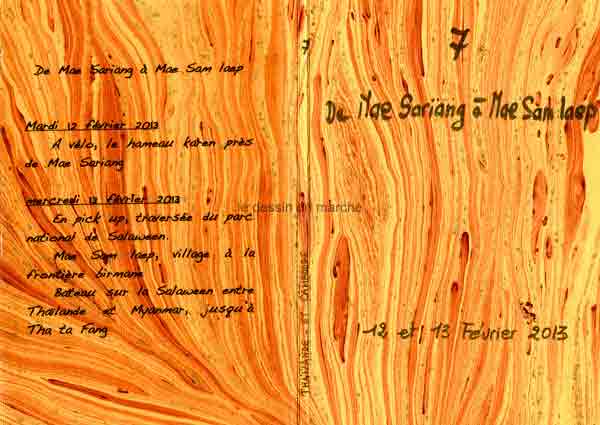 De Mae Sariang à Mae Sam laep
Mardi 12 février 2013
A vélo, le hameau karen près
de Mae Sariang
mercredi 13 février 2013
En pick up, traversée du parc
national de Salaween.
Mae Sam laep, village à la
frontière birmane
Bateau sur la Salaween entre
Thaïlande et Myanmar, jusqu'à
Tha ta Fang
7
THAILANDE - ET CAMBODGE
le dessin en marche
7
De Mae Sariang à Mae Sam laep
12 et 13 Février 2013